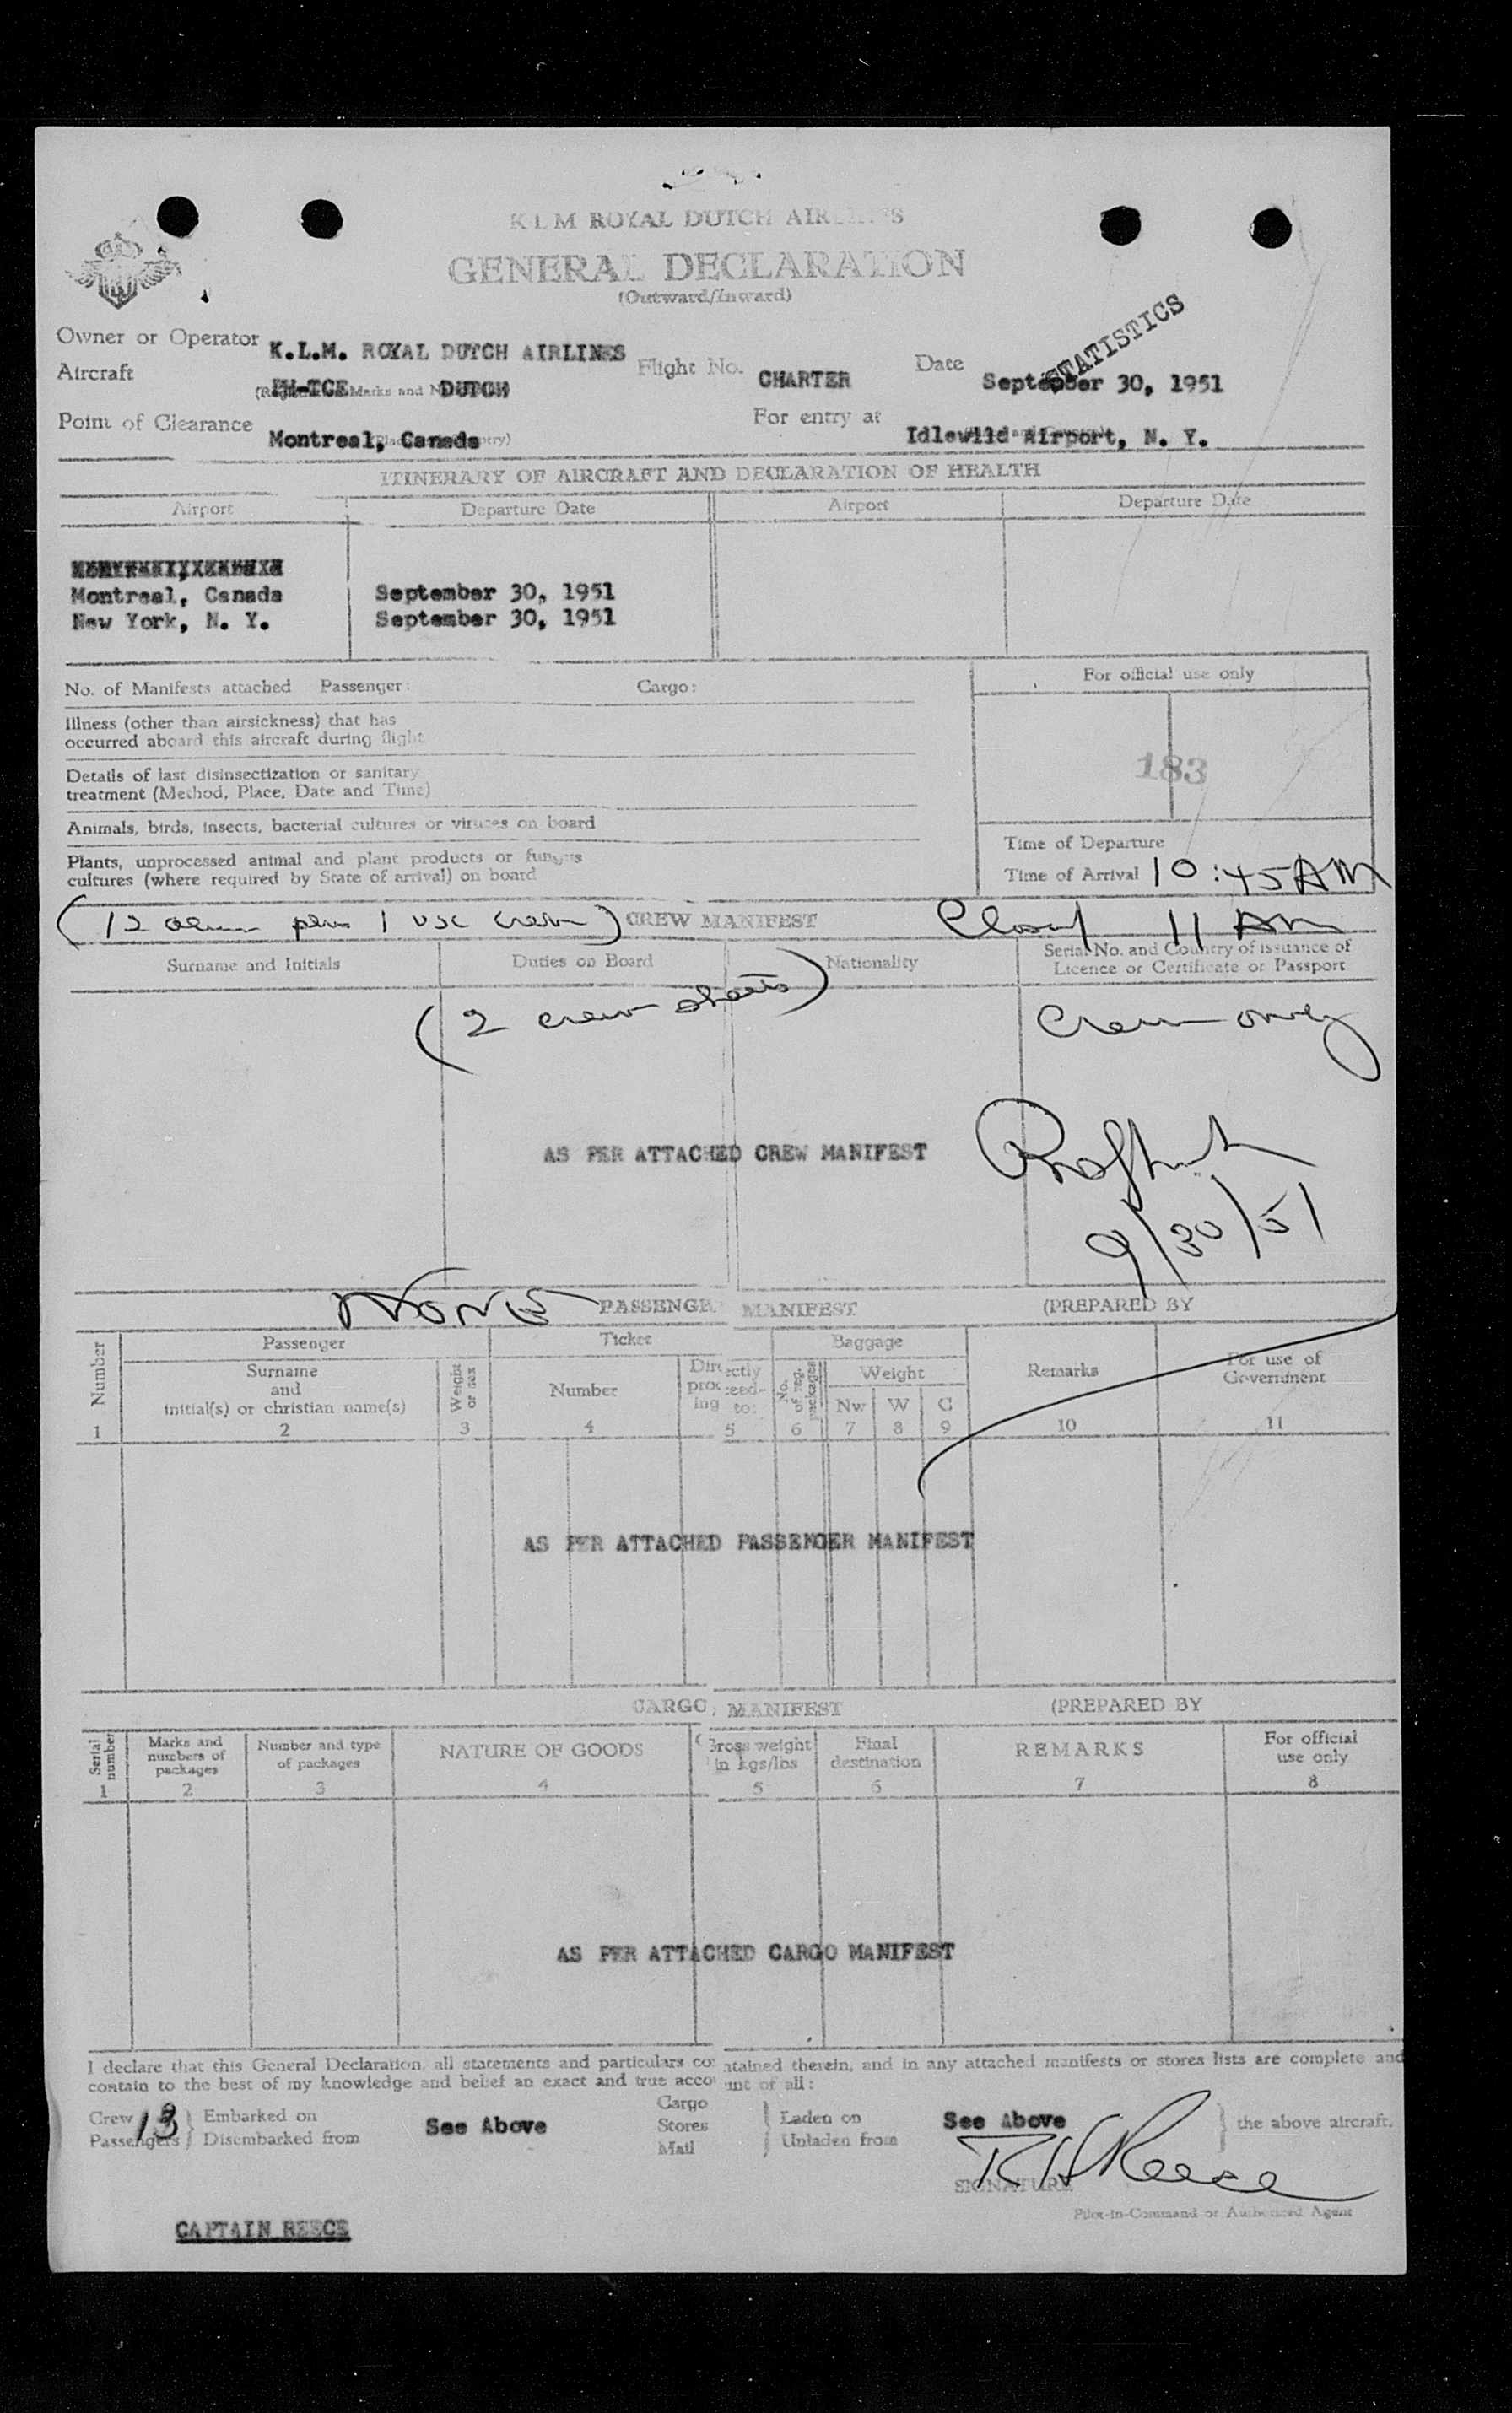 KLM ROYAL DUTCH AIRLINES
GENERAL DECLARATION
(Outward/Inward)
STATISTICS
Owner or Operator K.L.M. ROYAL DUTCH AIRLINES Flight No. CHARTER Date September 30, 1951
Aircraft PH-TCE DUTCH
Point of Clearance Montreal, Canada For entry at Idlewild Airport, N. Y.
ITINERARY OF AIRCRAFT AND DECLARATION OF HEALTH
Airport Departure Date Airport Departure Date
Montreal, Canada September 30, 1951
New York, N. Y. September 30, 1951
No. of Manifests attached Passenger: Cargo: For official use only
Illness (other than airsickness) that has
occurred aboard this aircraft during flight
Details of last disinsectization or sanitary
treatment (Method, Place, Date and Time)
183
Animals, birds, insects, bacterial cultures or viruses on board
Plants, unprocessed animal and plant products or fungus
cultures (where required by State of arrival) on board
Time of Departure
Time of Arrival 10:45 AM
(12 alien plus 1 USC crew) CREW MANIFEST Closed 11 AM
Surname and Initials Duties on Board Nationality Serial No. and Country of issuance of
Licence or Certificate or Passport
(2 crew sheets) Crew only
AS PER ATTACHED CREW MANIFEST
9/30/51
NONE PASSENGER MANIFEST (PREPARED BY
Number Passenger Ticket Baggage Remarks For use of
Government
Surname
and
initial(s) or christian name(s) Weight
or sex Number Directly
proceed-
ing to: No.
of reg.
packages Weight
Nw W C
1 2 3 4 5 6 7 8 9 10 11
AS PER ATTACHED PASSENGER MANIFEST
CARGO MANIFEST (PREPARED BY
Serial
number Marks and
numbers of
packages Number and type
of packages NATURE OF GOODS Gross weight
in kgs/lbs Final
destination REMARKS For official
use only
1 2 3 4 5 6 7 8
AS PER ATTACHED CARGO MANIFEST
I declare that this General Declaration, all statements and particulars contained therein, and in any attached manifests or stores lists are complete and
contain to the best of my knowledge and belief an exact and true account of all:
Crew 13 Embarked on Cargo Laden on
Passengers Disembarked from See Above Stores See Above the above aircraft.
Mail Unladen from
R H Reece
SIGNATURE
Pilot-in-Command or Authorized Agent
CAPTAIN REECE